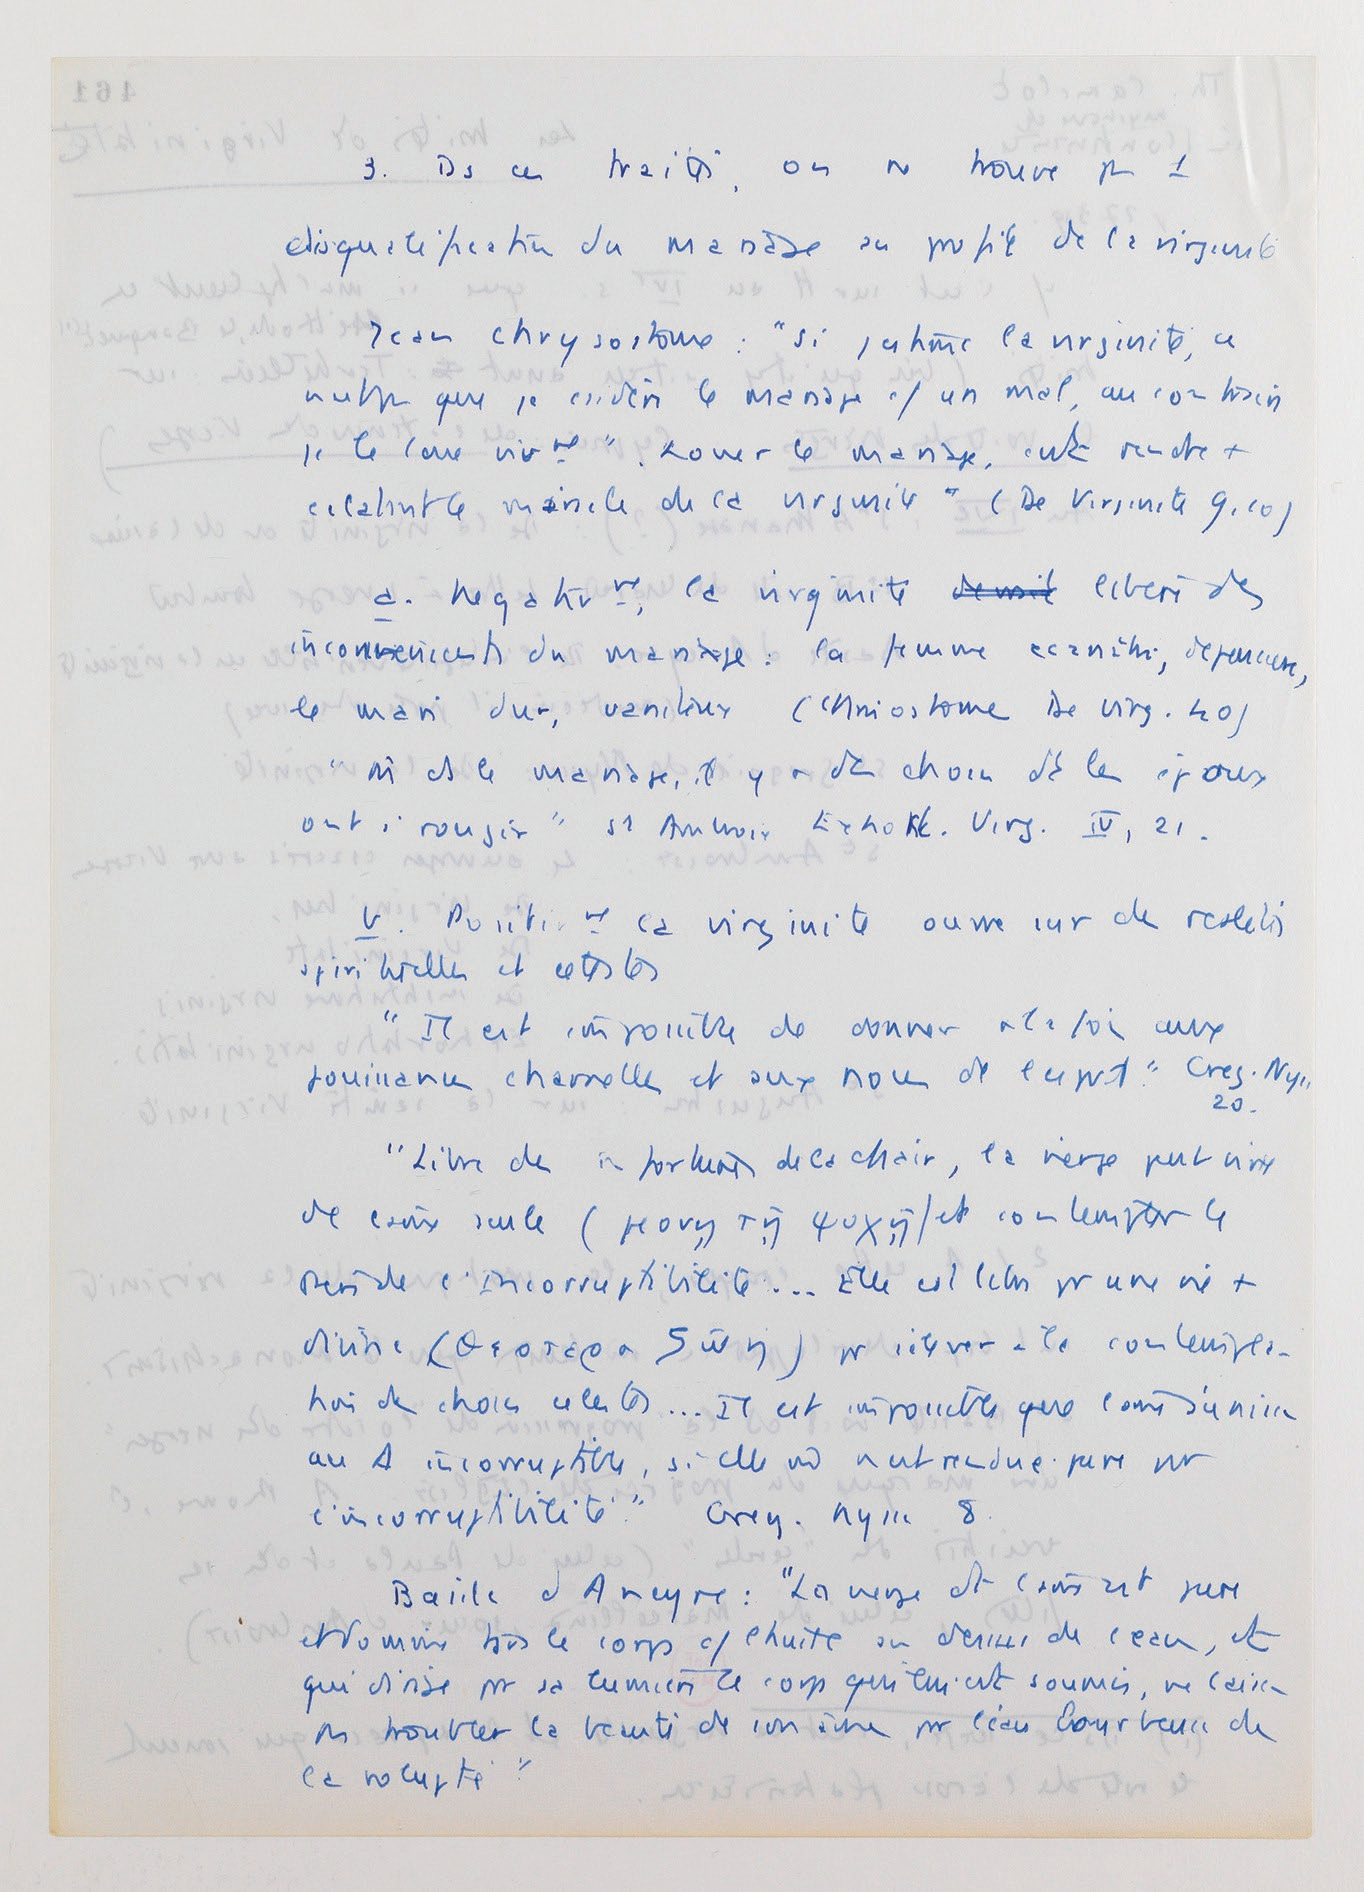 3. Ds ces traités, on ne trouve pas 1
disqualification du mariage au profit de la virginité
Jean Chrysostome : "Si j'estime la virginité, ce
n'est pas que je considère le mariage c/ un mal, au contraire
je le loue vivmt". "Louer le mariage, c'est rendre +
éclatant le de la virginité" (De Virginité 9, 10)
a. Négativmt, la virginité libère des
inconvénients du mariage : la femme acariâtre, dépensière,
le mari dur, vaniteux (Chrisostome De Virg. 40)
"M ds le mariage, il y a des choses dt les époux
ont à rougir" St Ambroise Exhort. Virg. IV, 21.
b. Positivmt la virginité ouvre sur des réalités
spirituelles et célestes
"Il est impossible de donner à la fois aux
jouissances charnelles et aux noces de l'esprit." Greg. Nyss
20.
"Libre des importunités de la chair, la vierge peut vivre
de l'âme seule (μονῃ τῇ ψυχῇ) et contempler le
monde de l'incorruptibilité... Elle est libre pr une vie +
divine (θεοτερα ζωη) pr s'élever à la contempla-
tion des choses célestes... Il est impossible que l'âme s'unisse
au D incorruptible, si elle ne s'est rendue pure pr
l'incorruptibilité." Greg. Nyss 8
Basile d'Ancyre : "La vierge dt l'âme est pure
et domine tout le corps c/ l'huile au dessus de l'eau, et
qui dirige pr sa lumière le corps qui lui est soumis, ne laisse
pas troubler la beauté de son âme pr l'eau bourbeuse de
la volupté"